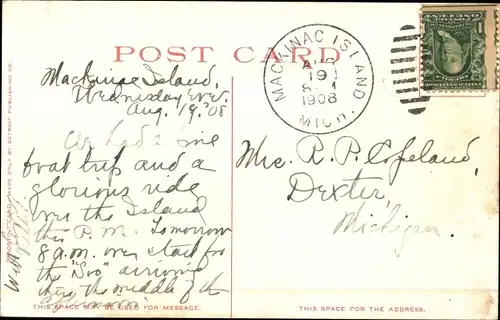 POST CARD
MACKINAC ISLAND
AUG
19
1908
MICH.
Mackinac Island,
Wednesday Eve.
Aug. 19, '08
We had a fine
boat trip and a
glorious ride
over the Island
this P.M. Tomorrow
8 a.m. we start for
the "Soo" arriving
there the middle of the
afternoon.
Mrs. R. P. Copeland,
Dexter,
Michigan.
THIS SPACE MAY BE USED FOR MESSAGE.
THIS SPACE FOR THE ADDRESS.